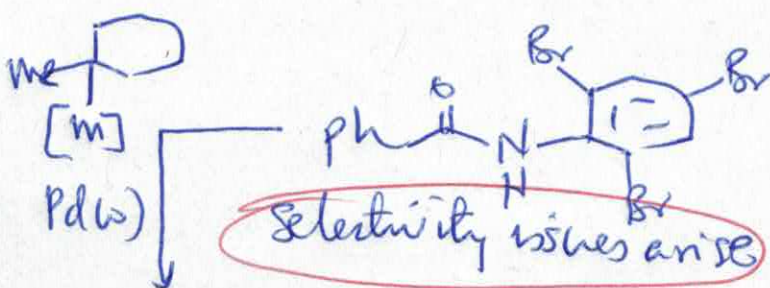 Me
[M]
Pd(0)
Ph
O
N
H
Br
Br
Br
Selectivity issues arise